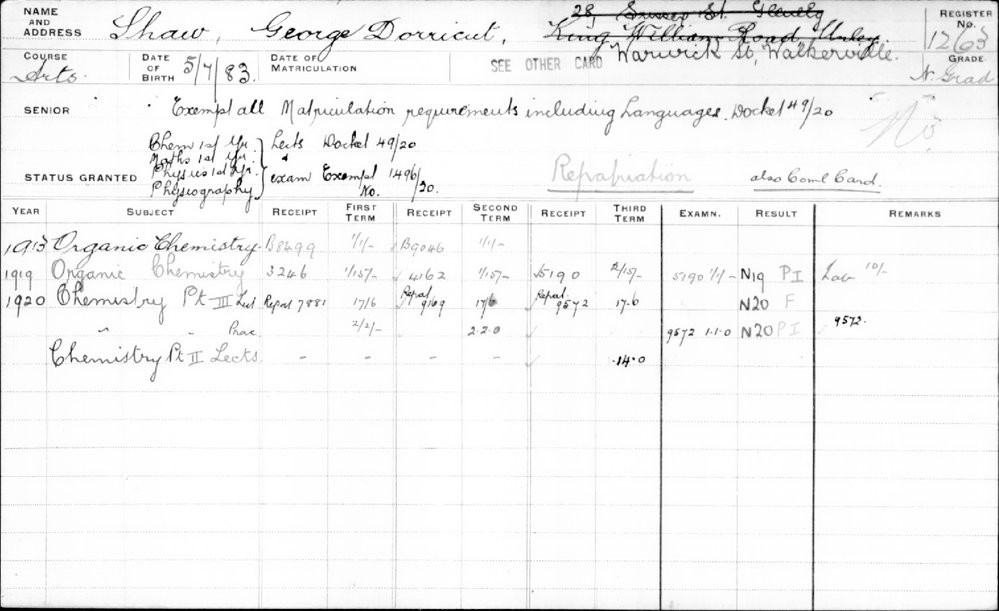 NAME AND ADDRESS Shaw, George Dorricut, 28 Sussex St. Glenelg
King William Road Unley
Warwick St, Walkerville.
REGISTER No. 12/63
COURSE Arts. DATE OF BIRTH 5/7/83. DATE OF MATRICULATION SEE OTHER CARD GRADE N. Grad
SENIOR Exempt all Matriculation requirements including Languages. Docket 49/20
No
STATUS GRANTED Chem 1st Yr. Maths 1st Yr. Physics 1st Yr. Physiography } Lects Docket 49/20
" exam Exempt No. 1496/20.
Repatriation also Coml Card.
YEAR SUBJECT RECEIPT FIRST TERM RECEIPT SECOND TERM RECEIPT THIRD TERM EXAMN. RESULT REMARKS
1913 Organic Chemistry B8499 1/1/- B9046 1/1/-
1919 Organic Chemistry 3246 1/15/- 4162 1/15/- 5190 5190 1/1/- N19 P I Lab 10/-
1920 Chemistry Pt III Lect Repat 7881 17/6 Repat 9169 17/6 Repat 9572 17.6 N20 F
" " Prac. 2/2/- 2.2.0 9572 1.1.0 N20 P I 9572.
Chemistry Pt II Lects - - - - - .14.0